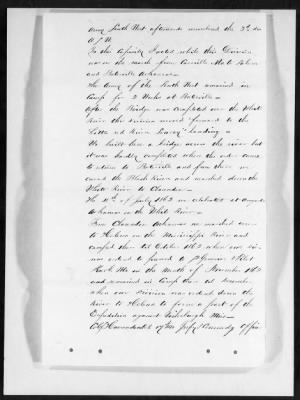 Army South West afterwards numbered the 3rd
In the Infantry Posted while this Division
was on the march from Pea Ridge to
Batesville Arkansas —
The Army of the South West remained in
Camp for 2 Weeks at Batesville —
After the Bridge was completed over the White
River this Division moved forward to the
Little red River Searcy Landing —
We built here a bridge across the river but
it was hardly completed when the order came
to return to Batesville and from there we
crossed the Black River and marched down the
White River to Clarendon —
The 4th of July 1862 we celebrated at Augusta
Arkansas on the White River —
From Clarendon Arkansas we marched
to Helena on the Mississippi River and
camped there til October 1862 when our
was ordered to forward to Pilot
Knob Mo in the Month of November 1862
and remained in Camp there til December
when our Division was ordered down the
River to Helena to form a part of the
Expedition against Vicksburgh Miss —